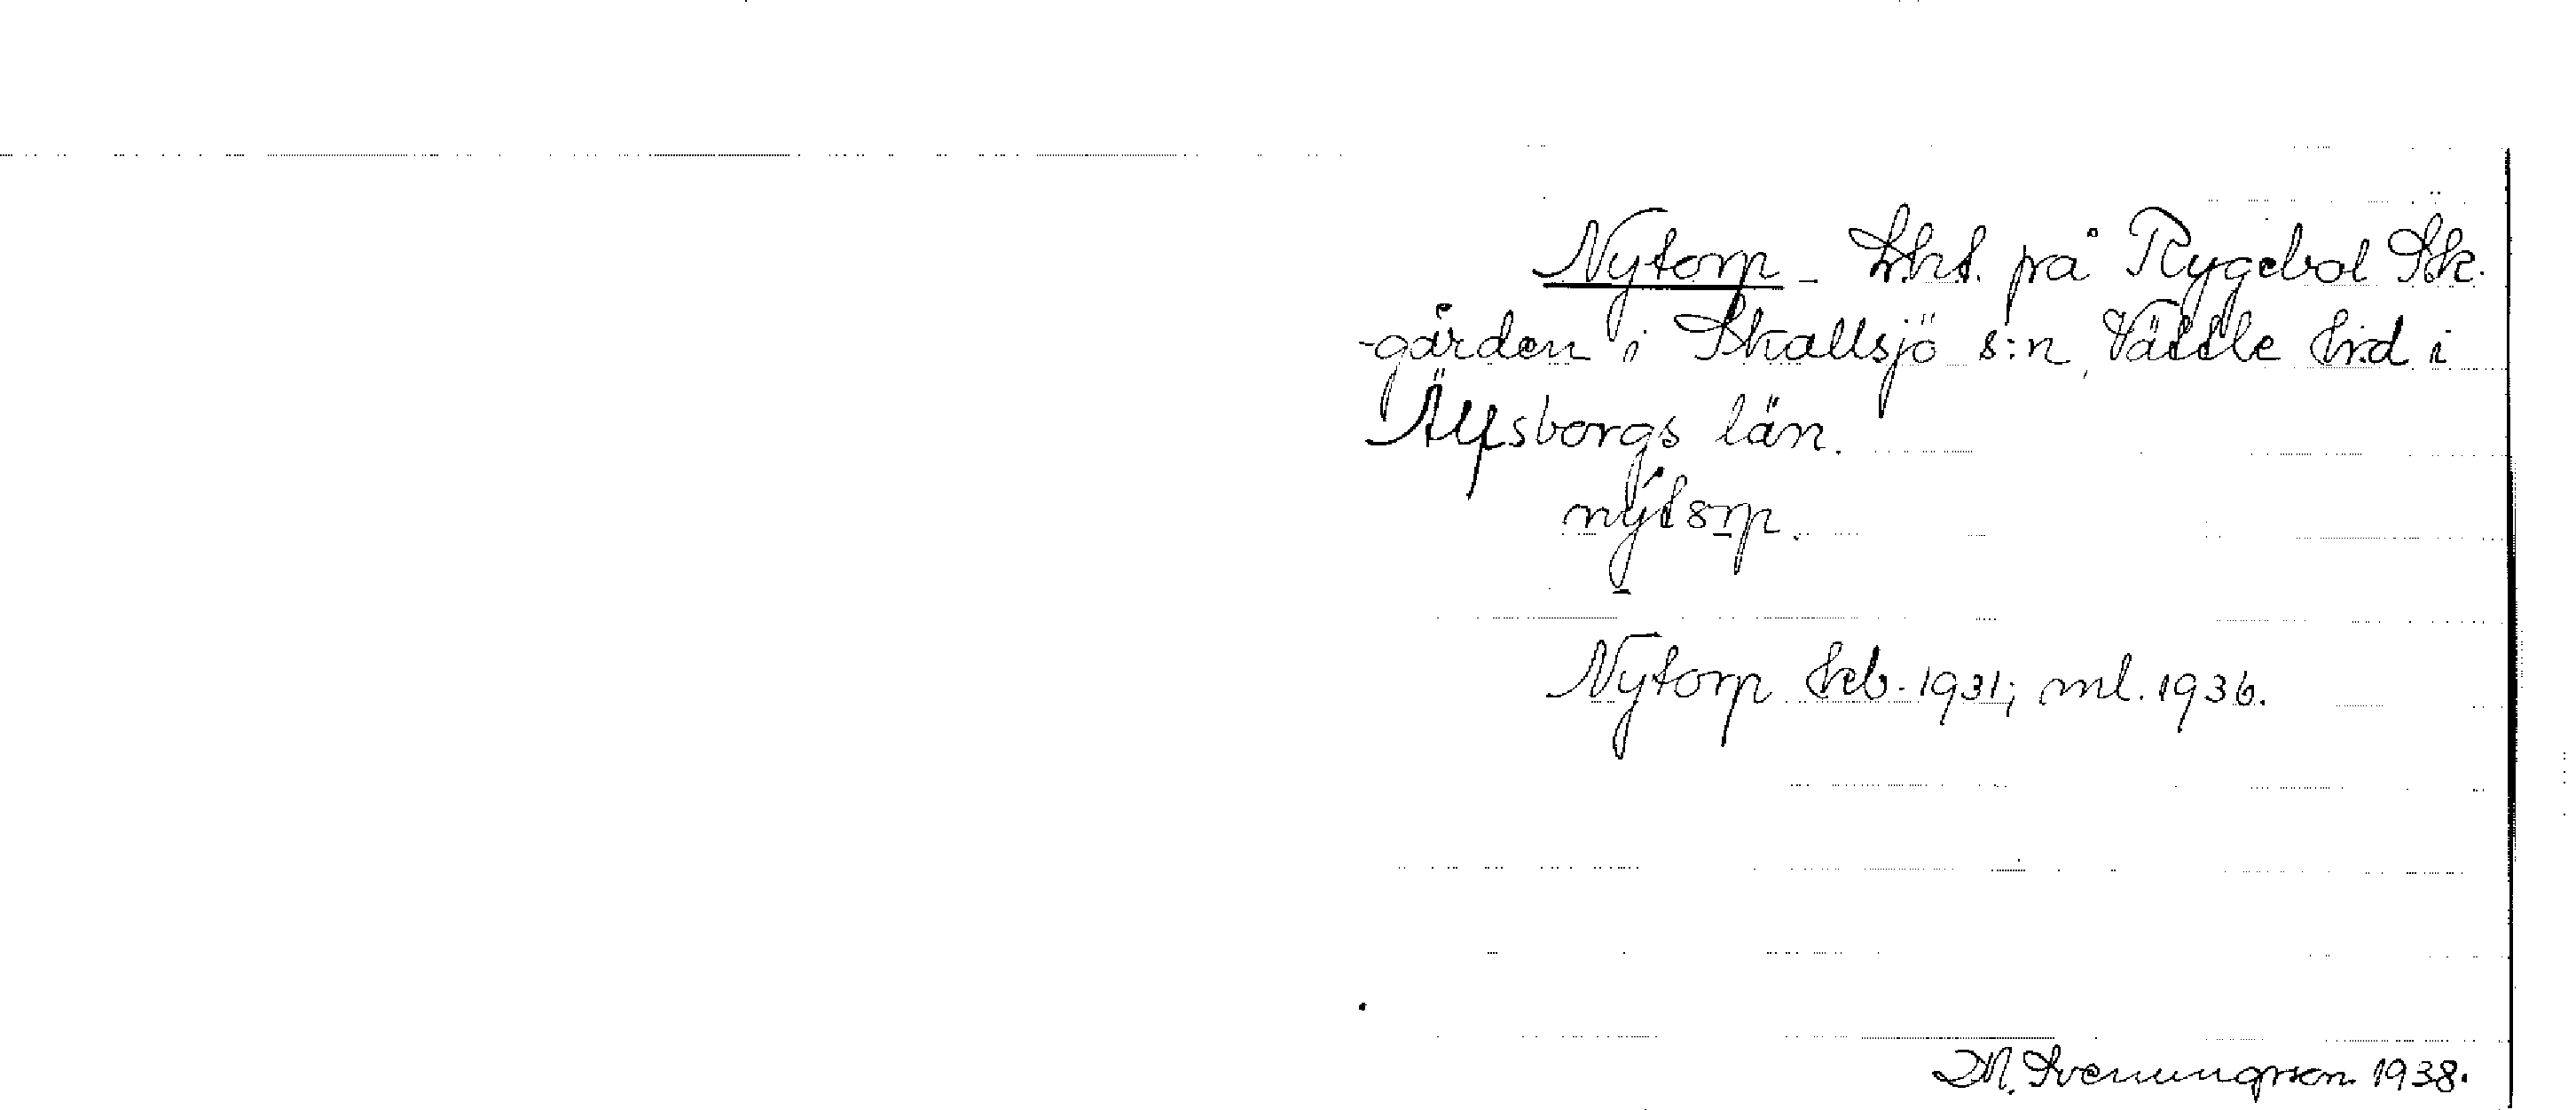 Nytorp – Lht. på Rygebol Sk.
-gården i Skallsjö s:n, Vättle hrd i
Älfsborgs län.
nýtorp.
Nytorp hrb. 1931; ml. 1936.
M. Svenungsson 1938.